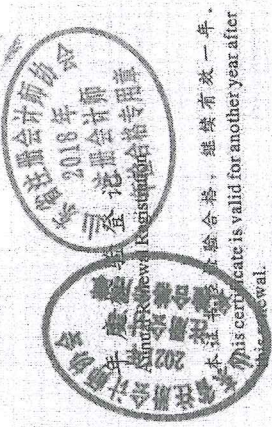 年度检验登记
Annual Renewal Registration
本证书经检验合格，继续有效一年。
This certificate is valid for another year after
this renewal.
省注册会计师协会
2018年
注册会计师
合格专用章
省注册会计师协会
注册会计师